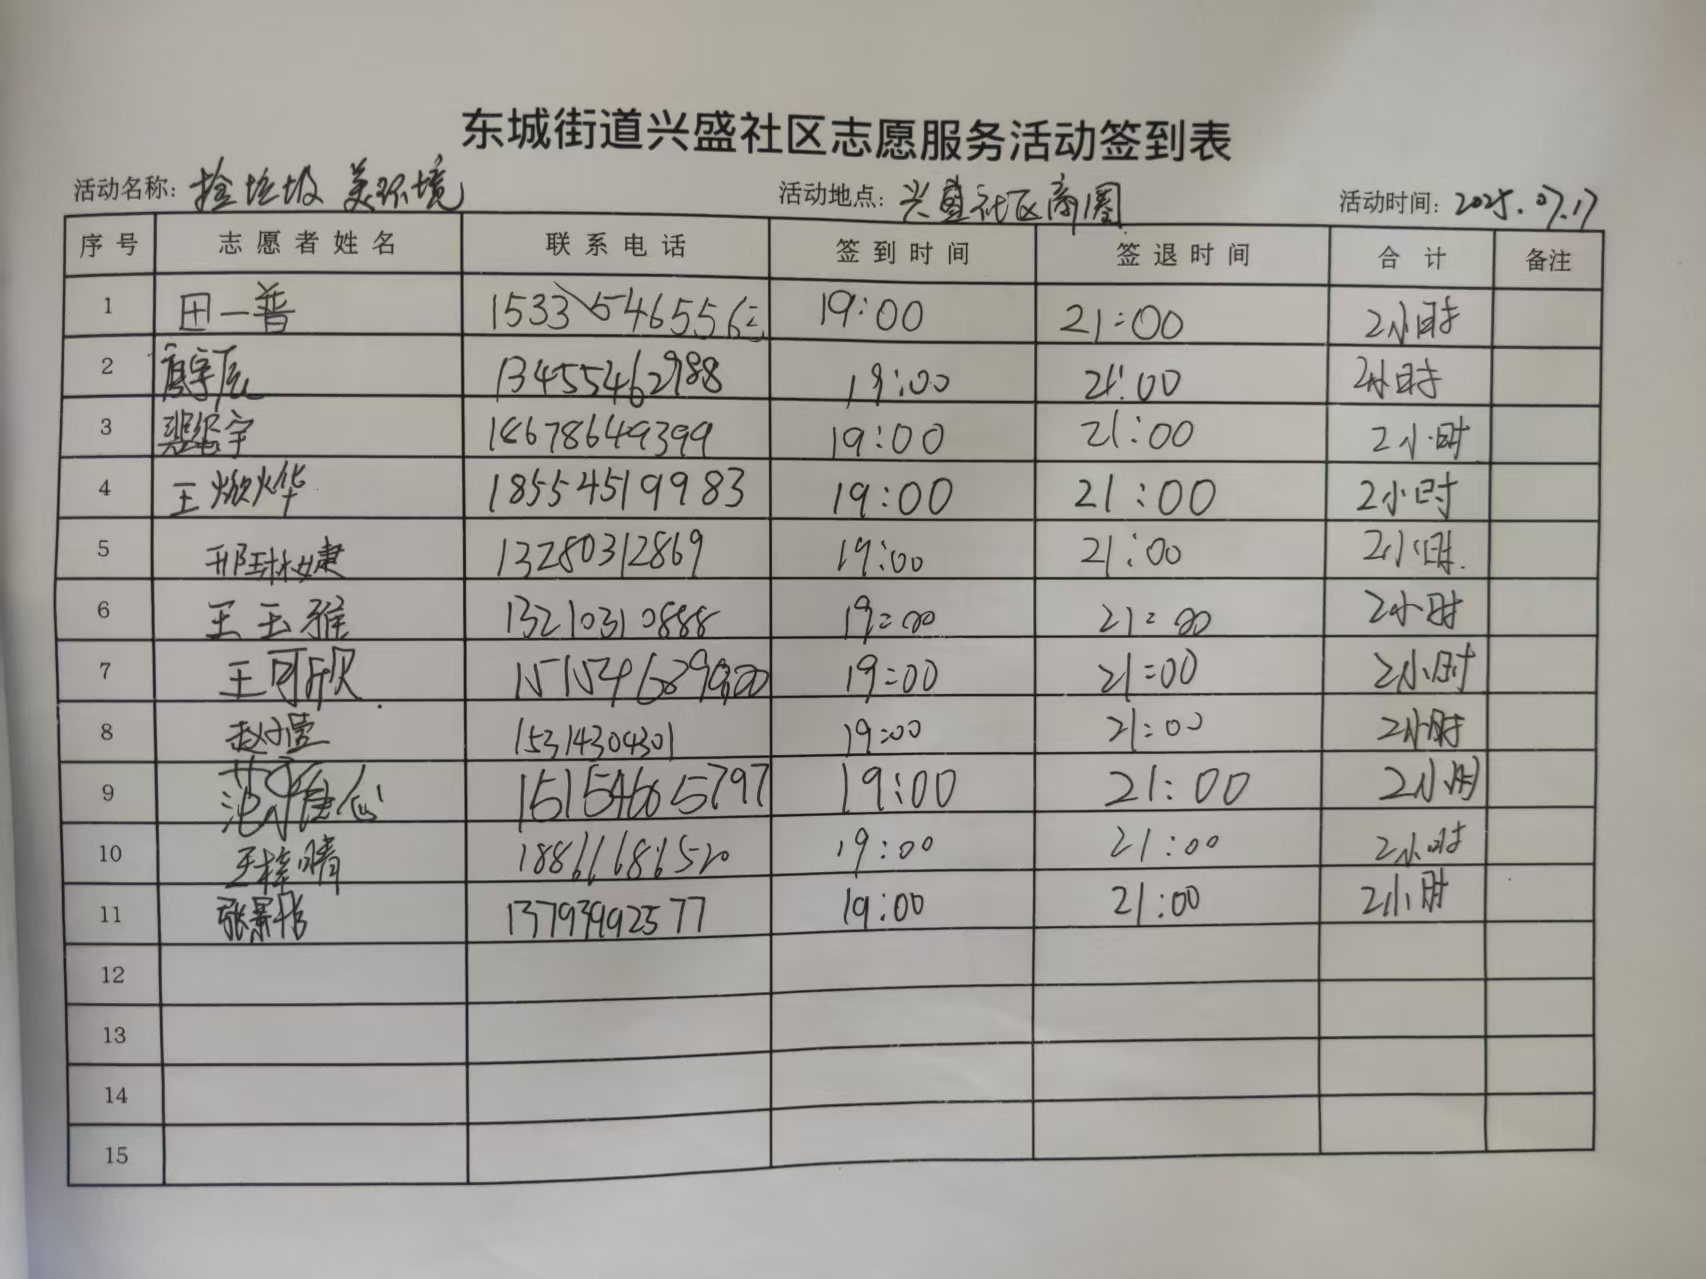 东城街道兴盛社区志愿服务活动签到表
活动名称：捡垃圾 美环境 活动地点：兴盛社区商圈 活动时间：2025.07.17
序号 志愿者姓名 联系电话 签到时间 签退时间 合计 备注
1 田一普 19:00 21:00 2小时
2 13455462988 19:00 21:00 2小时
3 18678649399 19:00 21:00 2小时
4 王焮烨 18554519983 19:00 21:00 2小时
5 邢琳婕 13280312869 19:00 21:00 2小时
6 王玉雅 13210310888 19:00 21:00 2小时
7 王可欣 19:00 21:00 2小时
8 15314304301 19:00 21:00 2小时
9 15154665797 19:00 21:00 2小时
10 王梓晴 18861686520 19:00 21:00 2小时
11 13793992577 19:00 21:00 2小时
12
13
14
15